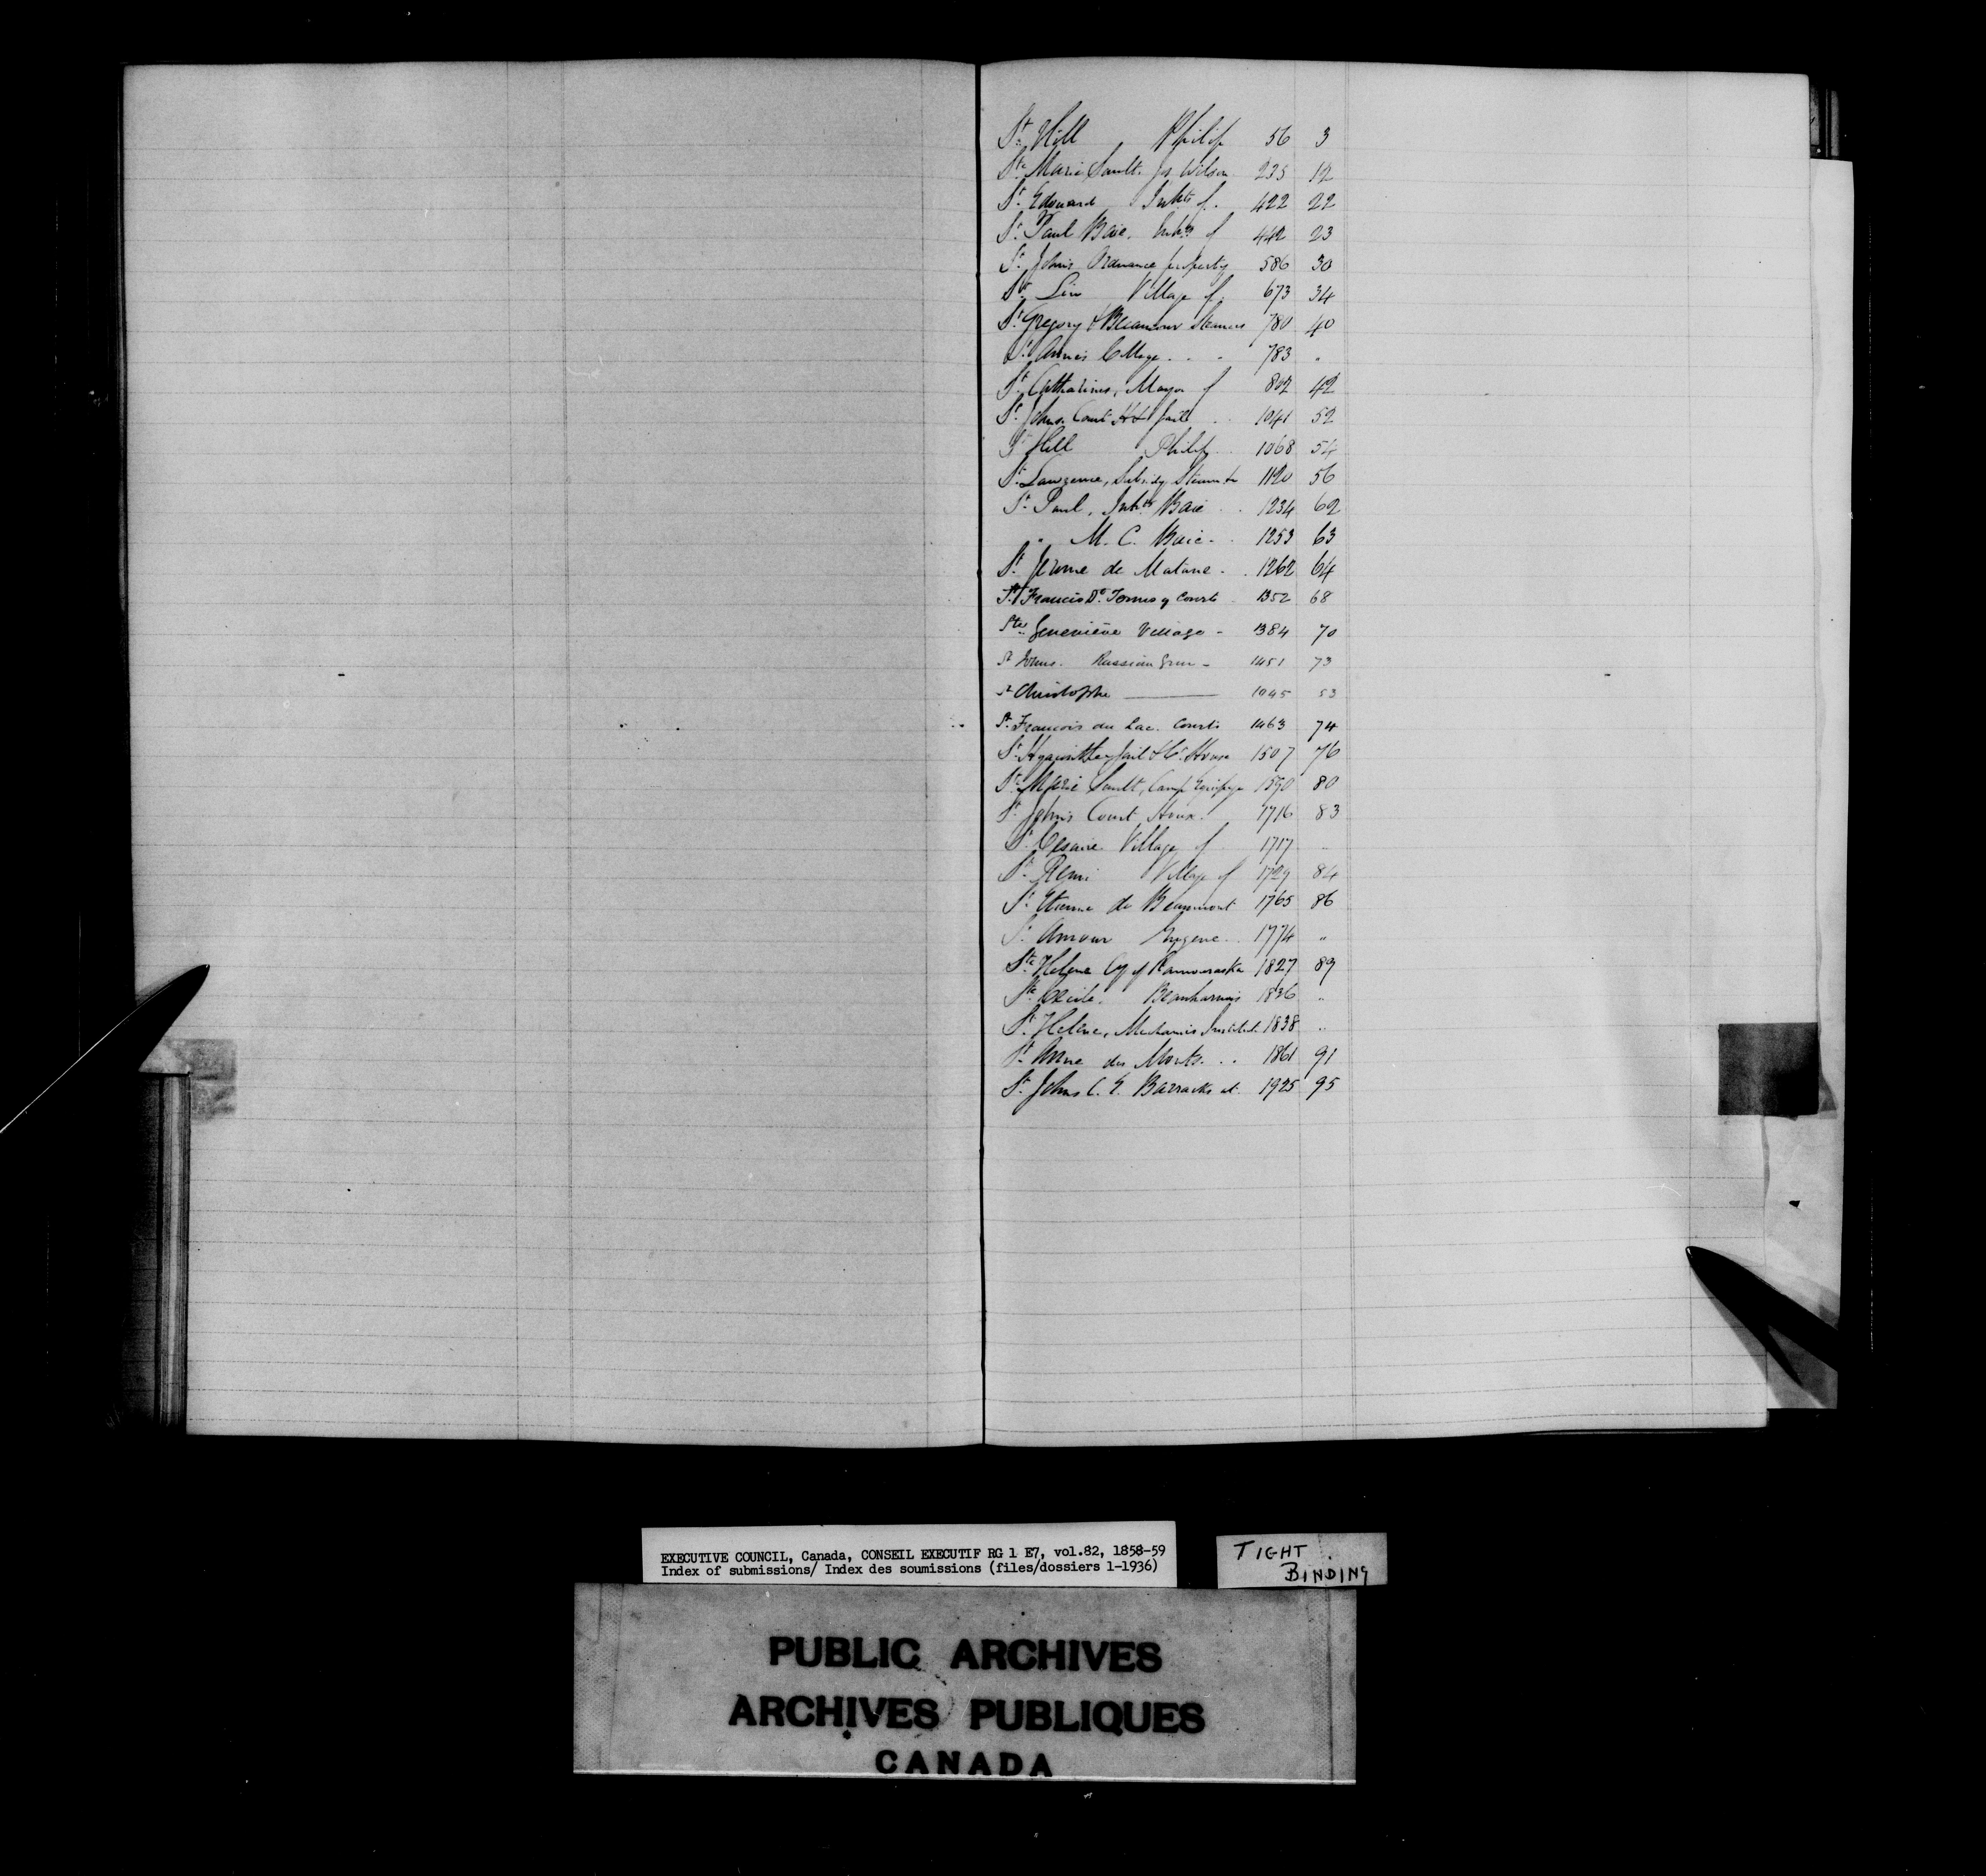 St. Hill Philip 56 3
Ste. Marie Sault. Jos. Wilson 235 12
St. Edouard Inhts of. 422 22
St. Paul Baie, Inhts of 442 23
St. Johns Ordnance property 586 30
St. Lin Village of. 673 34
St. Gregory & Becancour Steamers 780 40
St. Anne's College . . . 783 "
St. Catharines, Mayor of 802 42
St. Johns. Court H & Jail . . 1041 52
St. Hill Philip. 1068 54
St. Lawrence, Subsidy 1120 56
St. Paul, Inhts Baie . . 1234 62
" M. C. Baie - . 1253 63
St. Jerome de Matane . . 1262 64
St. Francis Dt. Courts 1352 68
Ste. Geneviève Village - 1384 70
St Johns. Russian Gun - 1451 73
St Christophe 1045 53
St. Francois du Lac. Courts 1463 74
St. Hyacinthe Jail & Ct. House 1507 76
Ste. Marie Sault, Camp Equipage 1590 80
St. John's Court House. 1716 83
St. Cesaire Village of 1717 "
St. Remi Village of 1729 84
St. Etienne de Beaumont 1765 86
St. Amour . . 1774 "
Ste. Helene Cy of Kamouraska 1827 89
Ste. Cecile. Beauharnois 1836 "
St. Helene, Mechanics Institute 1838 "
St. Anne des Monts. . . 1861 91
St. Johns C. E. Barracks at. 1925 95
EXECUTIVE COUNCIL, Canada, CONSEIL EXECUTIF RG 1 E7, vol.82, 1858-59
Index of submissions/ Index des soumissions (files/dossiers 1-1936)
TIGHT
BINDING
PUBLIC ARCHIVES
ARCHIVES PUBLIQUES
CANADA